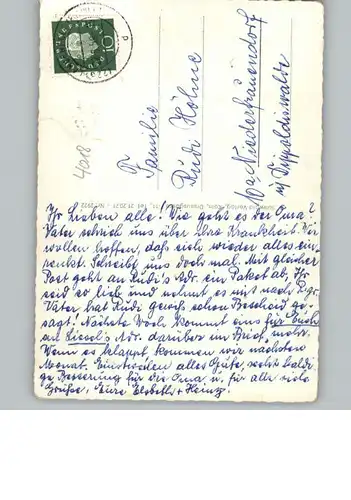 Familie
Rudi Höhne
10a Niederfrauendorf
ü/ Dippoldiswalde
4018
Ihr Lieben alle! Wie geht es der Oma?
Vater schrieb uns über Ihre Krankheit. Wir
wollen hoffen, daß sich wieder alles ein-
renkt. Schreibt uns doch mal. Mit gleicher
Post geht an Rudi's Adr. ein Paket ab, Ihr
seid so lieb und nehmt es mit nach P.
Vater hat Rudi gewiß schon Bescheid ge-
sagt! Nächste Woch. kommt eins für Euch
an Liesel's Adr. darüber im Brief mehr.
Wenn es klappt, kommen wir nächsten
Monat. Einstweilen alles Gute, recht baldi-
ge Besserung für die Oma u. für alle viele
Grüße, Eure Elsbeth + Heinz